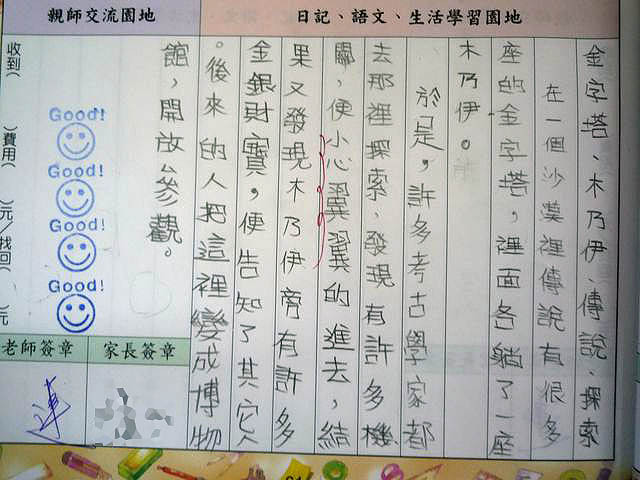 日記、語文、生活學習園地
金字塔、木乃伊、傳說、探索
在一個沙漠裡傳說有很多
座的金字塔，裡面各躺了一座
木乃伊。
於是，許多考古學家都
去那裡探索、發現有許多機
關，便小心翼翼的進去，結
果又發現木乃伊旁有許多
金銀財寶，便告知了其它人
。後來的人把這裡變成博物
館，開放參觀。
親師交流園地
Good!
Good!
Good!
Good!
收到(
)費用(
)元/找回(
)元
家長簽章
老師簽章